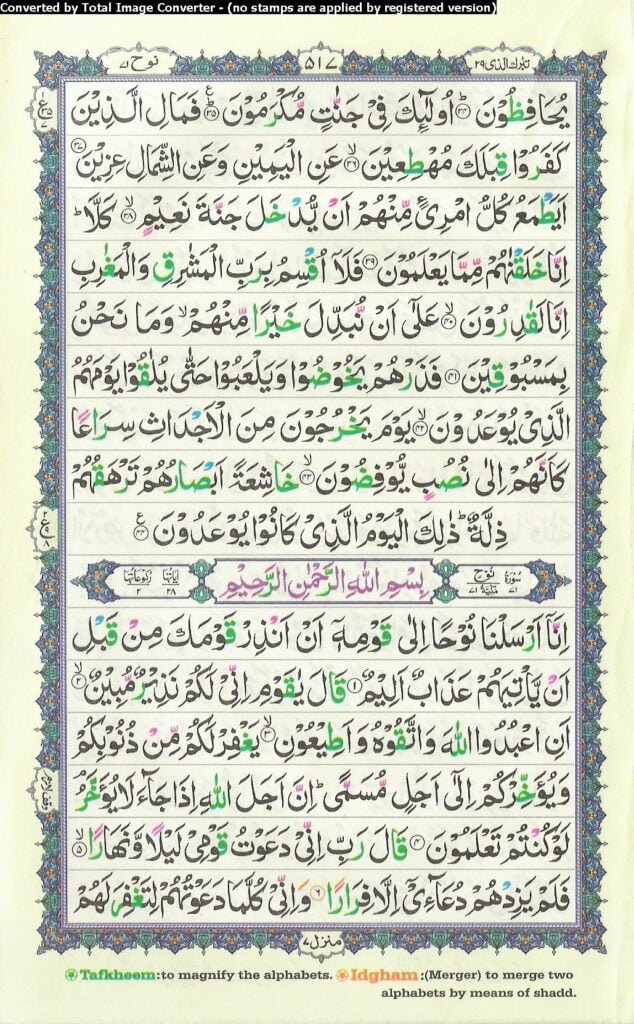 Converted by Total Image Converter - (no stamps are applied by registered version)
تبٰرك الذي ٢٩
٥١٧
نوح ٧١
يُحَافِظُوْنَ ﴿٣٤﴾ اُولٰٓئِكَ فِيْ جَنّٰتٍ مُّكْرَمُوْنَ ﴿٣٥﴾ فَمَالِ الَّذِيْنَ
كَفَرُوْا قِبَلَكَ مُهْطِعِيْنَ ﴿٣٦﴾ عَنِ الْيَمِيْنِ وَعَنِ الشِّمَالِ عِزِيْنَ ﴿٣٧﴾
اَيَطْمَعُ كُلُّ امْرِئٍ مِّنْهُمْ اَنْ يُّدْخَلَ جَنَّةَ نَعِيْمٍ ﴿٣٨﴾ كَلَّا ؕ
اِنَّا خَلَقْنٰهُمْ مِّمَّا يَعْلَمُوْنَ ﴿٣٩﴾ فَلَاۤ اُقْسِمُ بِرَبِّ الْمَشٰرِقِ وَالْمَغٰرِبِ
اِنَّا لَقٰدِرُوْنَ ﴿٤٠﴾ عَلٰٓى اَنْ نُّبَدِّلَ خَيْرًا مِّنْهُمْ ۙ وَمَا نَحْنُ
بِمَسْبُوْقِيْنَ ﴿٤١﴾ فَذَرْهُمْ يَخُوْضُوْا وَيَلْعَبُوْا حَتّٰى يُلٰقُوْا يَوْمَهُمُ
الَّذِيْ يُوْعَدُوْنَ ﴿٤٢﴾ يَوْمَ يَخْرُجُوْنَ مِنَ الْاَجْدَاثِ سِرَاعًا
كَاَنَّهُمْ اِلٰى نُصُبٍ يُّوْفِضُوْنَ ﴿٤٣﴾ خَاشِعَةً اَبْصَارُهُمْ تَرْهَقُهُمْ
ذِلَّةٌ ؕ ذٰلِكَ الْيَوْمُ الَّذِيْ كَانُوْا يُوْعَدُوْنَ ﴿٤٤﴾
سورة ٧١ نوح مكية ٧١
بِسْمِ اللهِ الرَّحْمٰنِ الرَّحِيْمِ
اٰياتها ٢٨ ركوعاتها ٢
اِنَّاۤ اَرْسَلْنَا نُوْحًا اِلٰى قَوْمِهٖۤ اَنْ اَنْذِرْ قَوْمَكَ مِنْ قَبْلِ
اَنْ يَّاْتِيَهُمْ عَذَابٌ اَلِيْمٌ ﴿١﴾ قَالَ يٰقَوْمِ اِنِّيْ لَكُمْ نَذِيْرٌ مُّبِيْنٌ ﴿٢﴾
اَنِ اعْبُدُوا اللهَ وَاتَّقُوْهُ وَاَطِيْعُوْنِ ﴿٣﴾ يَغْفِرْ لَكُمْ مِّنْ ذُنُوْبِكُمْ
وَيُؤَخِّرْكُمْ اِلٰٓى اَجَلٍ مُّسَمًّى ؕ اِنَّ اَجَلَ اللهِ اِذَا جَآءَ لَا يُؤَخَّرُ ۘ
لَوْ كُنْتُمْ تَعْلَمُوْنَ ﴿٤﴾ قَالَ رَبِّ اِنِّيْ دَعَوْتُ قَوْمِيْ لَيْلًا وَّنَهَارًا ﴿٥﴾
فَلَمْ يَزِدْهُمْ دُعَآءِيْۤ اِلَّا فِرَارًا ﴿٦﴾ وَاِنِّيْ كُلَّمَا دَعَوْتُهُمْ لِتَغْفِرَ لَهُمْ
منزل ٧
Tafkheem:to magnify the alphabets. Idgham:(Merger) to merge two
alphabets by means of shadd.